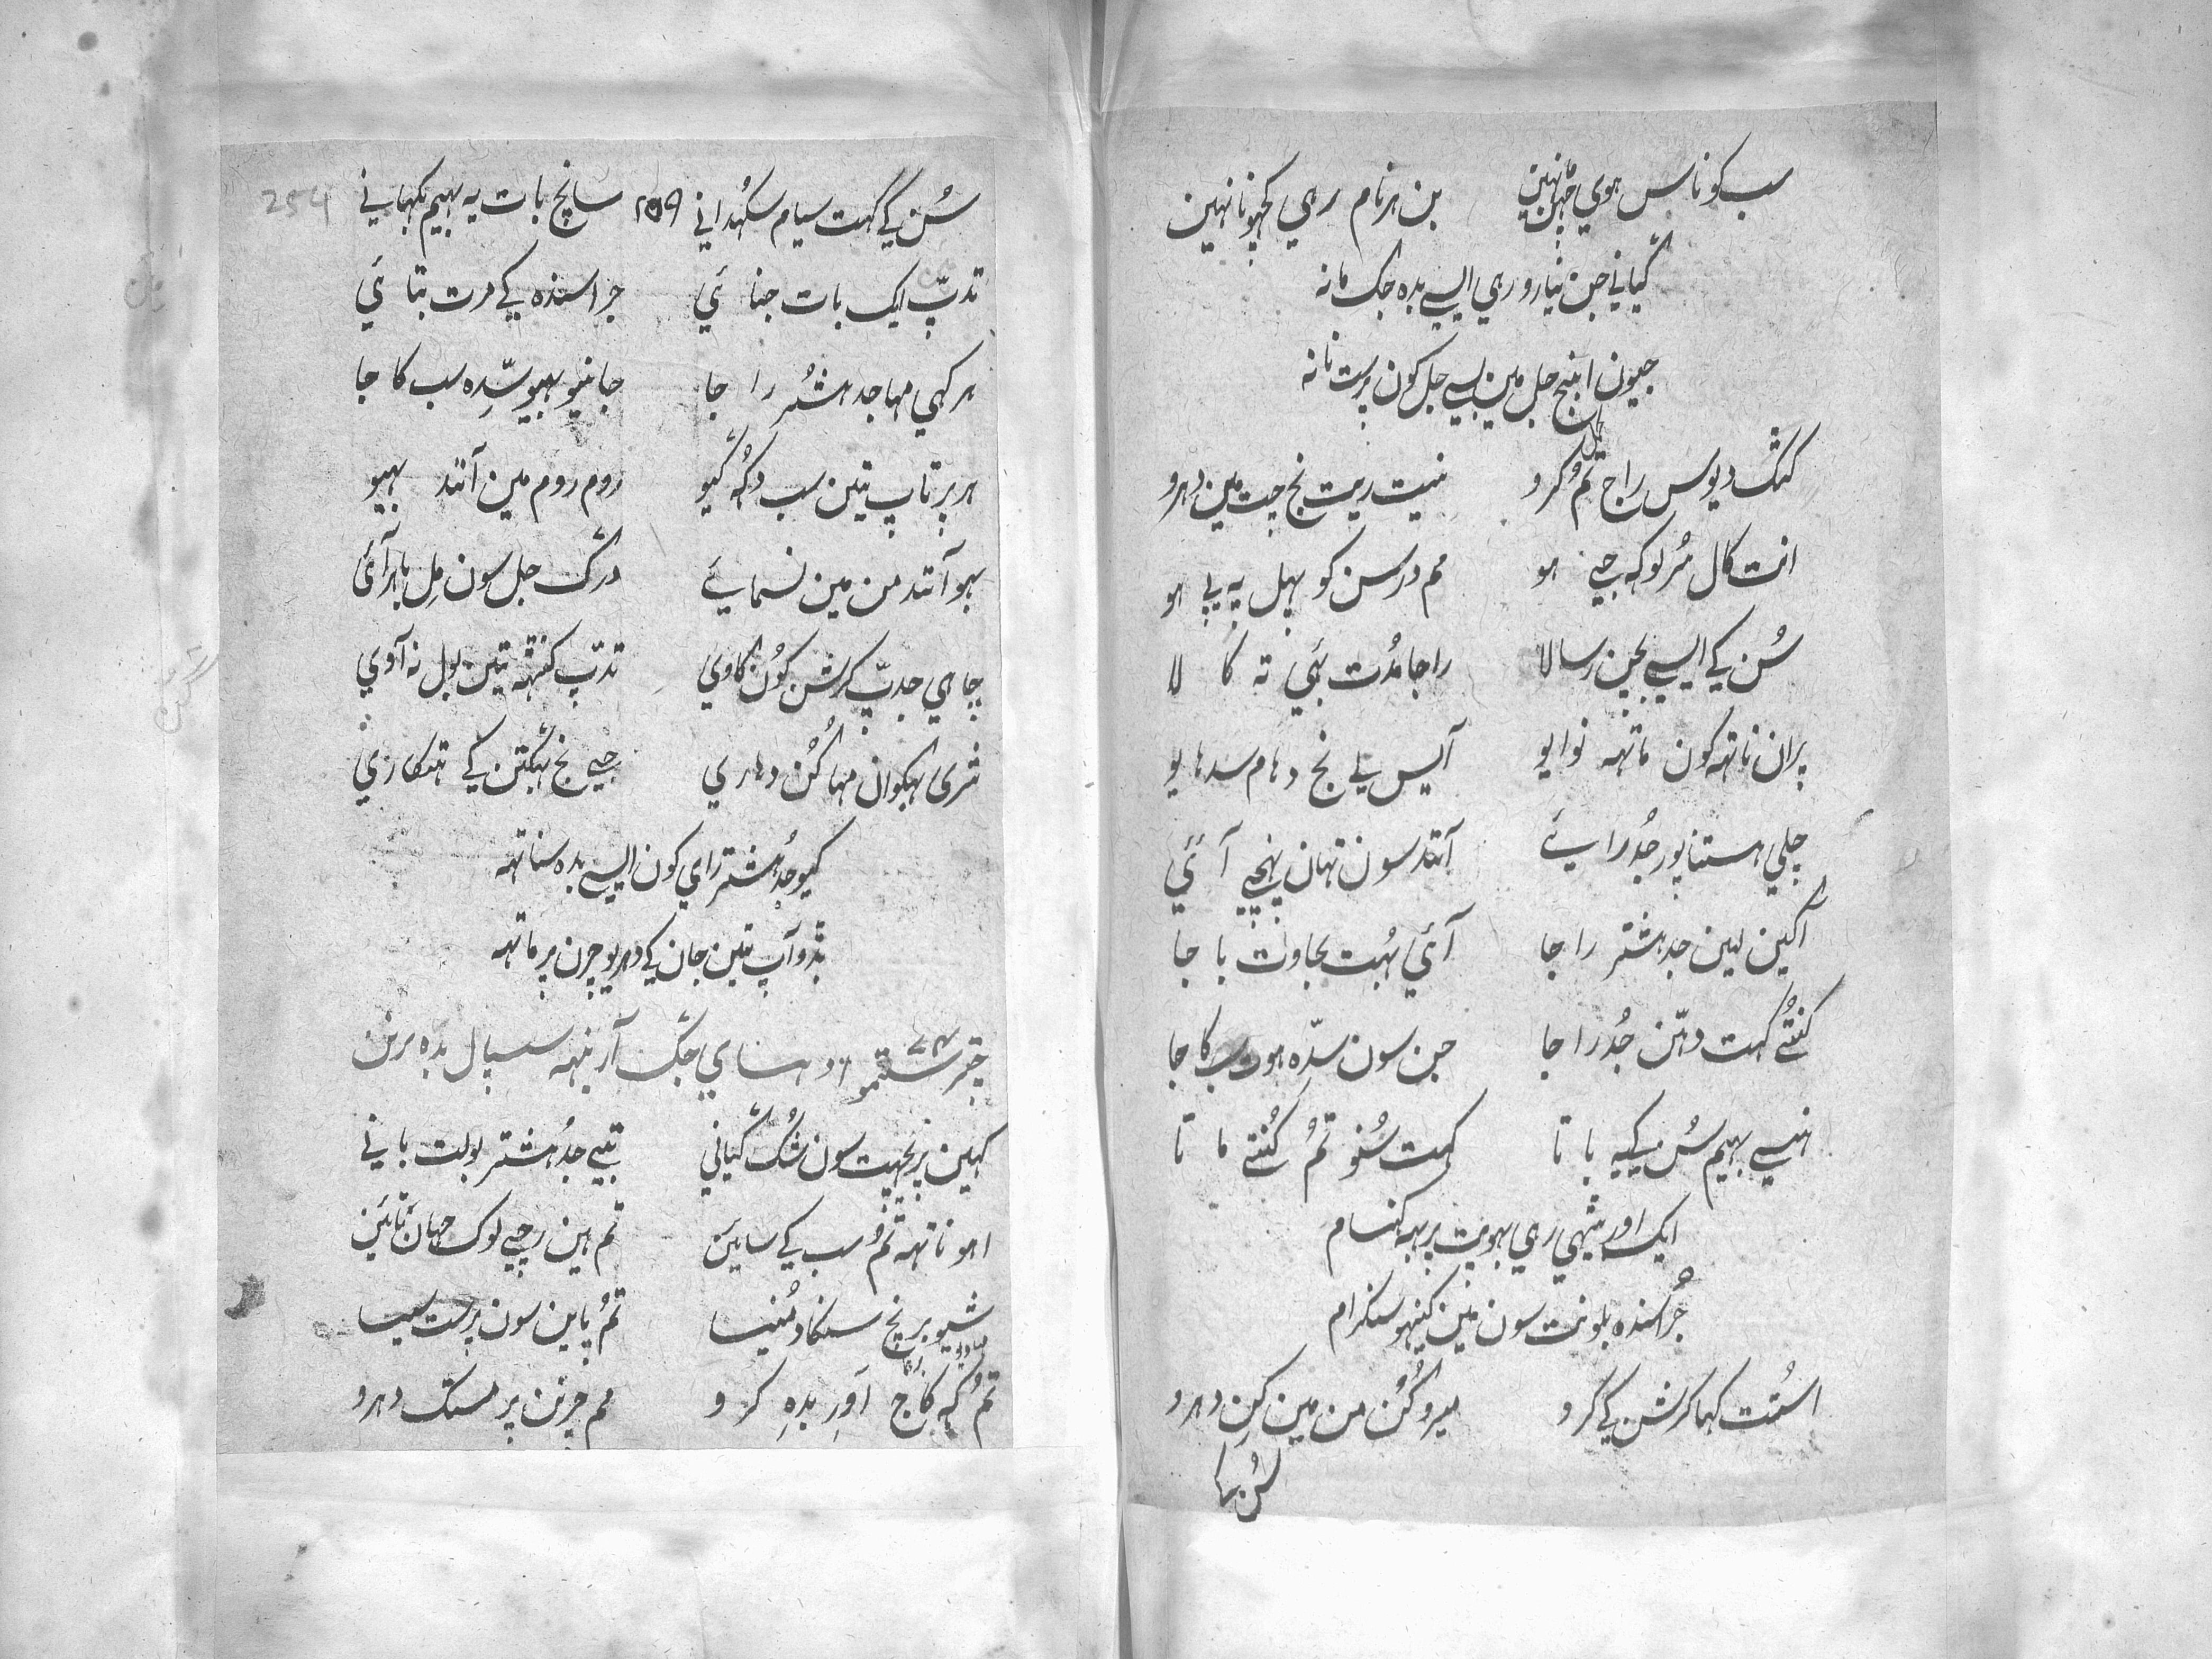 سب کو ناس ہوی جن مانہین بن ہر نام رہی کچہو نانہین
گیانی جن نیارو رہی ایسی بدہ جگ مانہ
جیون انبج جل مین بسے جل کون پرست نانہ
کتک دیوس راج تم کرو نیت ریت نج چت مین دہرو
انت کال مُر لوکہ جے ہو مم درسن کو پہل یہ پے ہو
سُن کے ایسے بچن رسالا راجا مُدت بہئی تہ کالا
پران ناتہہ کون ماتہہ نوایو آیس لے نج دہام سدہایو
چلی ہستناپور جُدرائے آنند سون تہان پہنچے آئی
آگین لین جدہشتر راجا آئی بہت بجاوت باجا
کُنتے کہت دہن جُدراجا جن سون سدہ ہوت سب کاجا
ہنسے بہیم سُن کے یہ باتا کہت سُنو تم کُنتے ماتا
ایک اور بیٹہی رہی بہومت پر ہہ گہنسام
جُراسندہ بلونت سون مین کینہو سنگرام
استُت کہا کرشن کی کرو میرو گُن من مین کن دہرو
سُن کے کہت سیام سکہدانی 259 سانچ بات یہ بہیم بکہانی
تدپ ایک بات جنائی جراسندہ کے مرت بتائی
ہر کہی مہا جدہشتر راجا جانیو بہیو سدہ سب کاجا
ہر پرتاپ تین سب دکہ گیو روم روم مین آنند بہیو
بہو آنند من مین نسمائے درگ جل سون مل باہر آئی
چاہی جدپ کرشن گون گاوی تدپ کنٹہہ تین بول نہ آوی
شری بہگوان مہا گُن دہاری جے نج بہگتن کے ہتکاری
کیو جُدہشتر رای کون ایسے بدہ سناتہہ
بڈو آپ تین جان کے دہریو چرن پر ماتہہ
کہین پریچہت سون شُک گیانی تبے جُدہشتر بولت بانی
اہو ناتہہ تُم سب کے سائین تم ہین رچے لوک جہان تائین
شیو برنچ سنکاد مُنیسا تُم پاین سون پرست سیسا
تُم کہ کاج اور بدہ کرو مم چرنن پر مستک دہرو